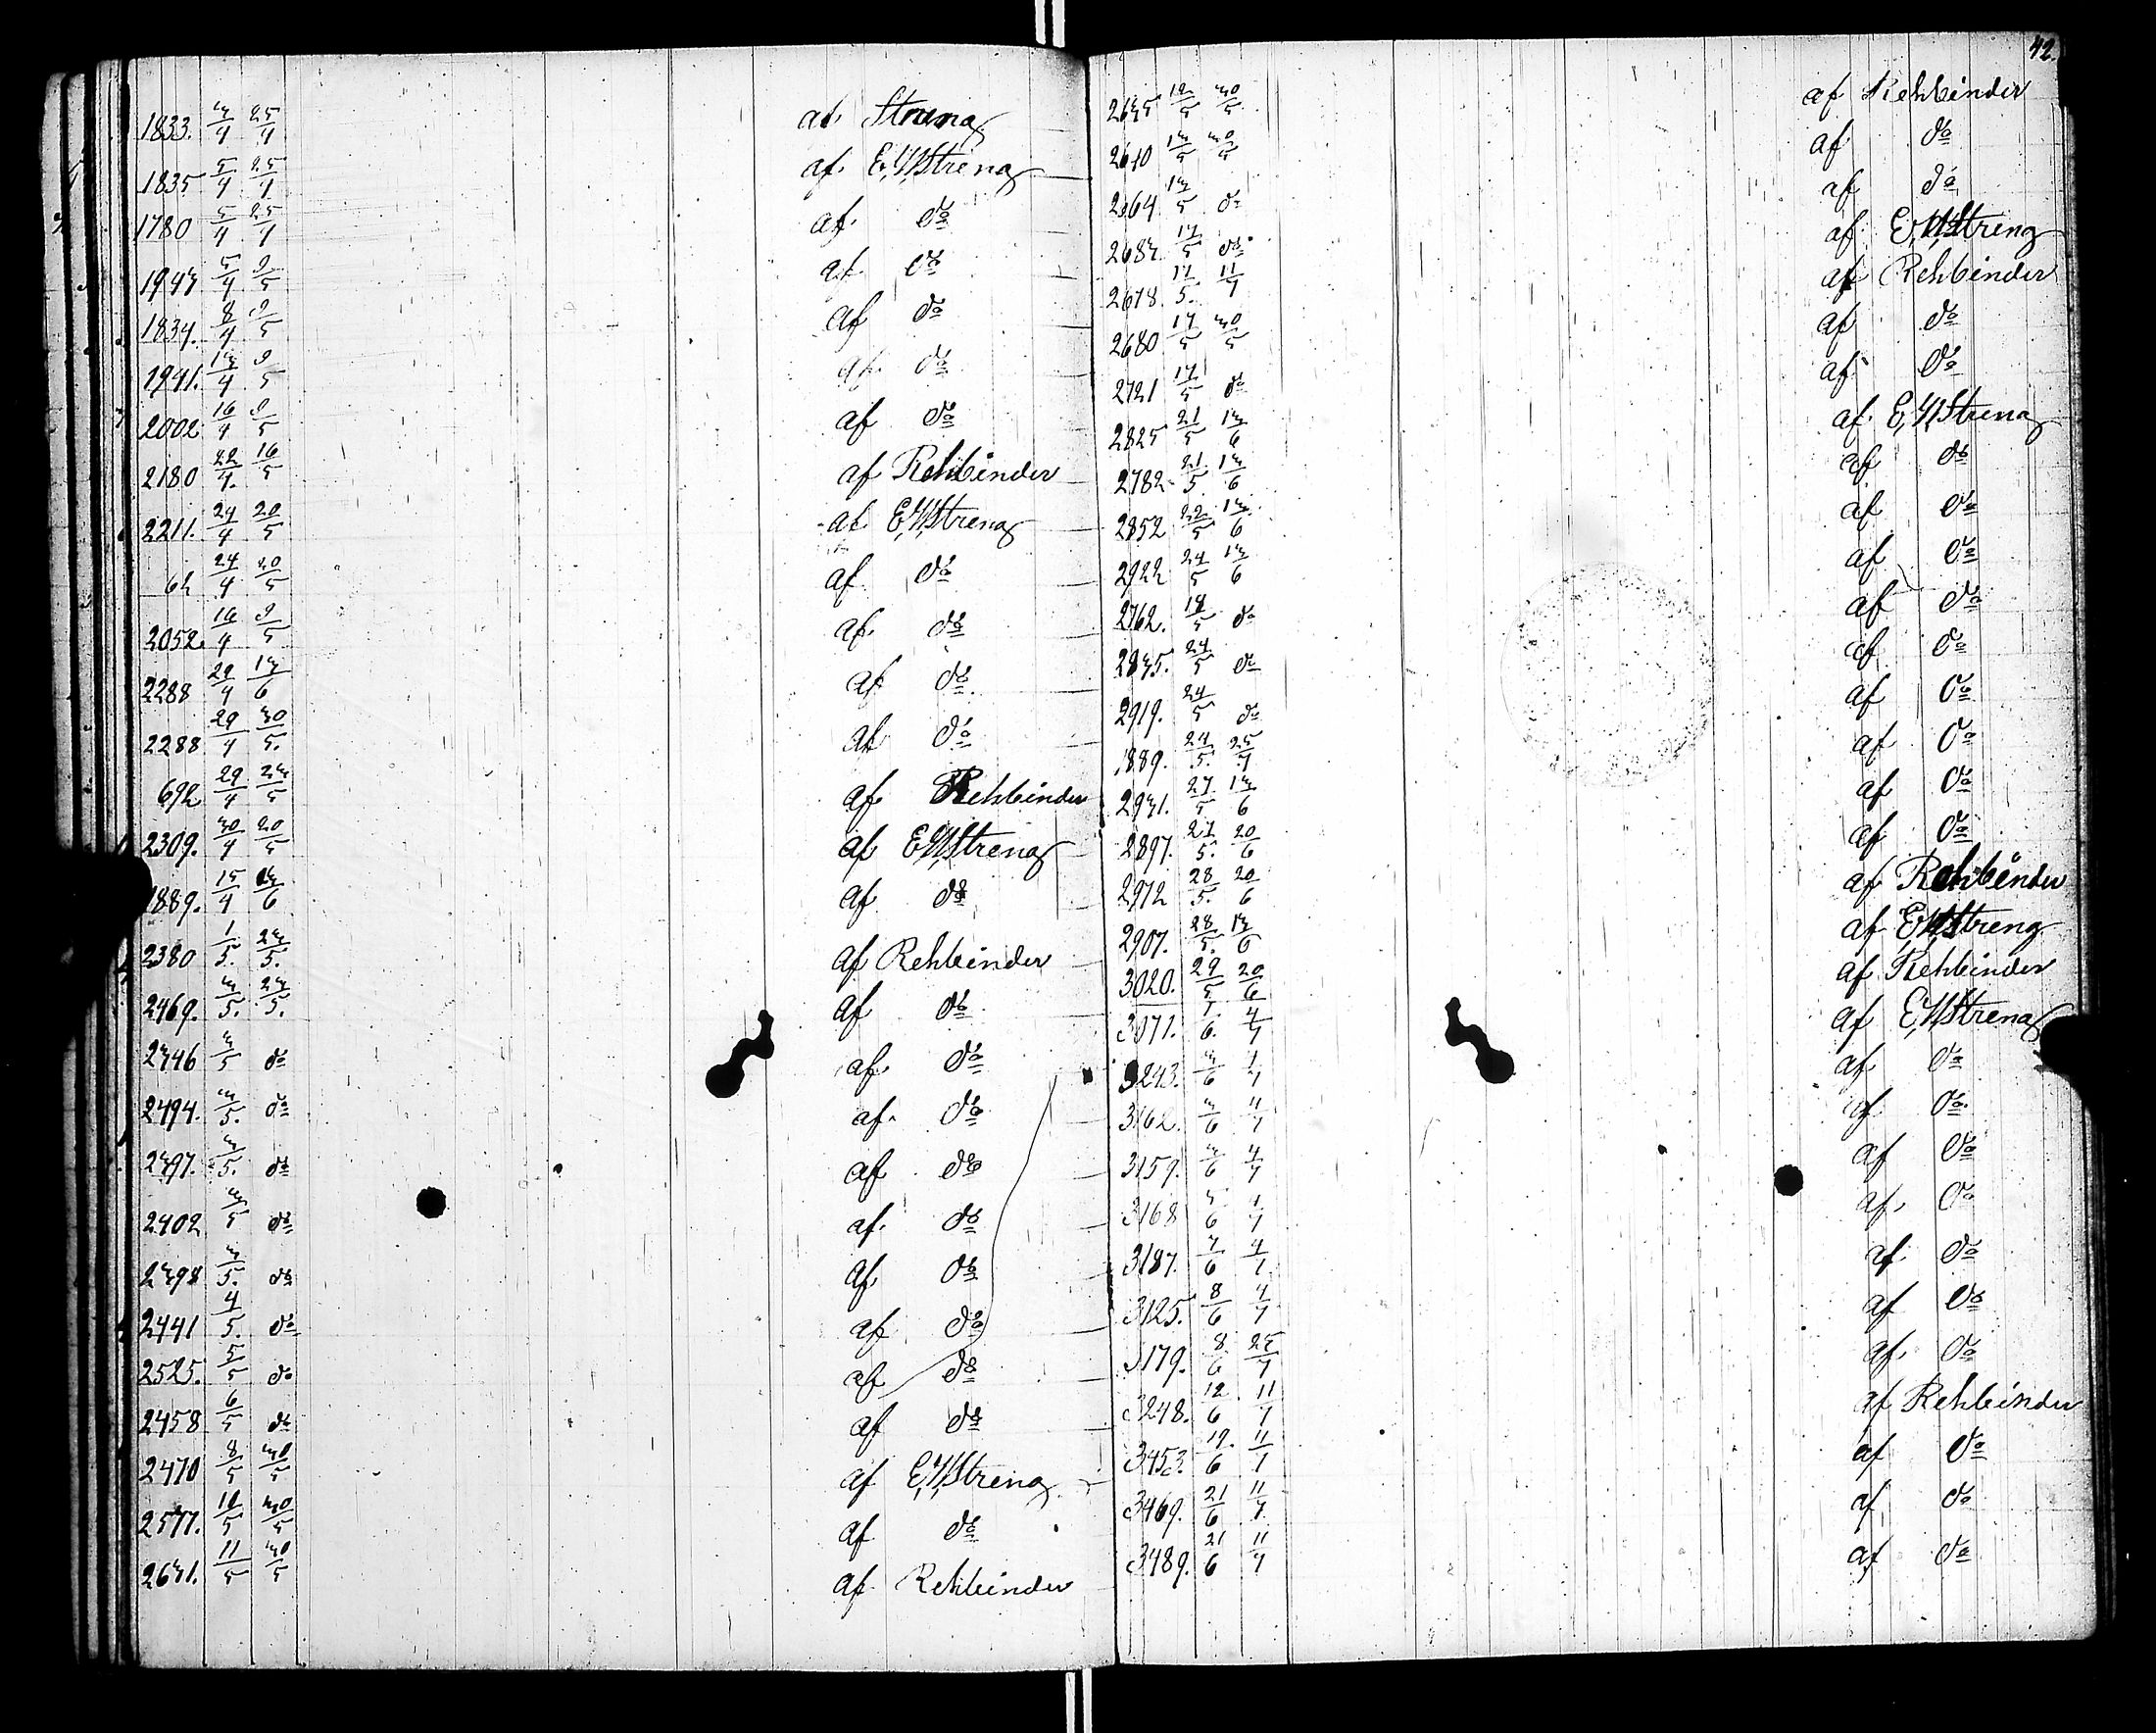 1833. 3/4 25/4 af Streng
1835 5/4 25/4 af E,W,Streng
1780 5/4 25/4 af do
1943 5/4 9/5 af do
1834. 8/4 9/5 af do
1941. 13/4 9/5 af do
2002 16/4 9/5 af do
2180 22/4. 16/5 af Rehbinder
2211. 24/4 20/5 af E,W,Streng
62 24/4 20/5 af do
2052. 16/4 9/5 af do
2288 29/4 13/6 af do
2288 29/4 30/5. af do
692 29/4 23/5 af Rehbinder
2309. 30/4 20/5 af E,W,Streng
1889. 15/4 13/6 af do
2380 1/5. 23/5. af Rehbinder
2469. 3/5. 23/5. af do
2346 3/5 do af do
2494. 3/5. do af do
2397. 3/5. do af do
2402 3/5 do af do
2398 3/5. do af do
2441 4/5. do af do
2525. 5/5 do af do
2458 6/5 do af do
2470 8/5 30/5 af E,W,Streng
2577. 11/5 30/5 af do
2631. 11/5 30/5 af Rehbinder
42.
2635 12/5 30/5 af Rehbinder
2610 13/5 30/5 af do
2364. 13/5 do af do
2683. 17/5 do af E,W,Streng
2678. 17/5. 11/7 af Rehbinder
2680 17/5 30/5 af do
2721 17/5 do af do
2825 21/5 13/6 af E,W,Streng
2782 21/5 13/6 af do
2852 22/5 13/6 af do
2922 24/5 13/6 af do
2762. 14/5 do af do
2835. 24/5 do af do
2919. 24/5 do af do
1889. 24/5. 25/7 af do
2931. 27/5 13/6 af do
2897. 27/5. 20/6 af do
2972 28/5. 20/6 af Rehbinder
2907. 28/5. 13/6 af E,W,Streng
3020. 29/5 20/6 af Rehbinder
3071. 1/6. 4/7 af E,W,Streng
3243. 3/6 4/7 af do
3162. 3/6 4/7 af do
3159. 3/6 4/7 af do
3168 3/6 4/7 af do
3187. 7/6 4/7 af do
3125. 8/6 4/7 af do
3179. 8/6 25/7 af do
3248. 12/6 11/7 af Rehbinder
3453. 19/6 11/7 af do
3469. 21/6 11/7 af do
3489. 21/6 11/7 af do